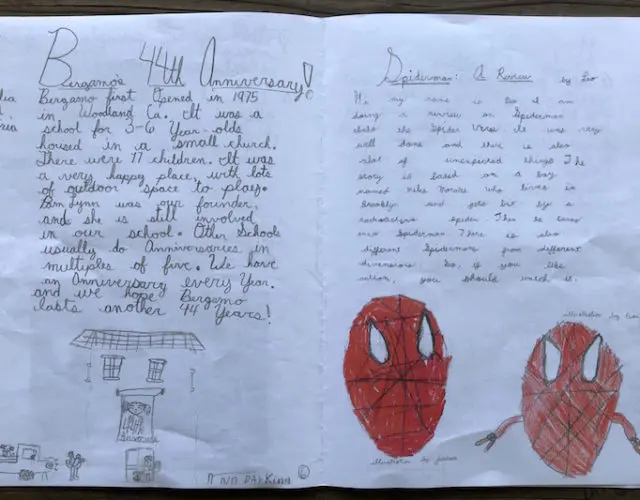 Bergamo's 44th Anniversary!
Bergamo first Opened in 1975
in Woodland Ca. It was a
school for 3-6 Year-olds
housed in a small church.
There were 17 children. It was
a very happy place, with lots
of outdoor space to play.
Pam Lynn was our founder,
and she is still involved
in our school. Other Schools
usually do Anniversaries in
multiples of five. We have
an Anniversary every Year.
and we hope Bergamo
lasts another 44 Years!
NO PARKING
©
Spiderman: A Review by Leo
Hi my name is Leo I am
doing a review on Spiderman
into the Spider Verse. It was very
well done and there is also
alot of unexpected things The
story is based on a boy
named Miles Morales who lives in
Brooklyn and gets bit by a
radioactive spider. Then he turns
into Spiderman. There is also
different Spidermans from different
dimensions. So, if you like
action, you should watch it.
illustration by
illustration by